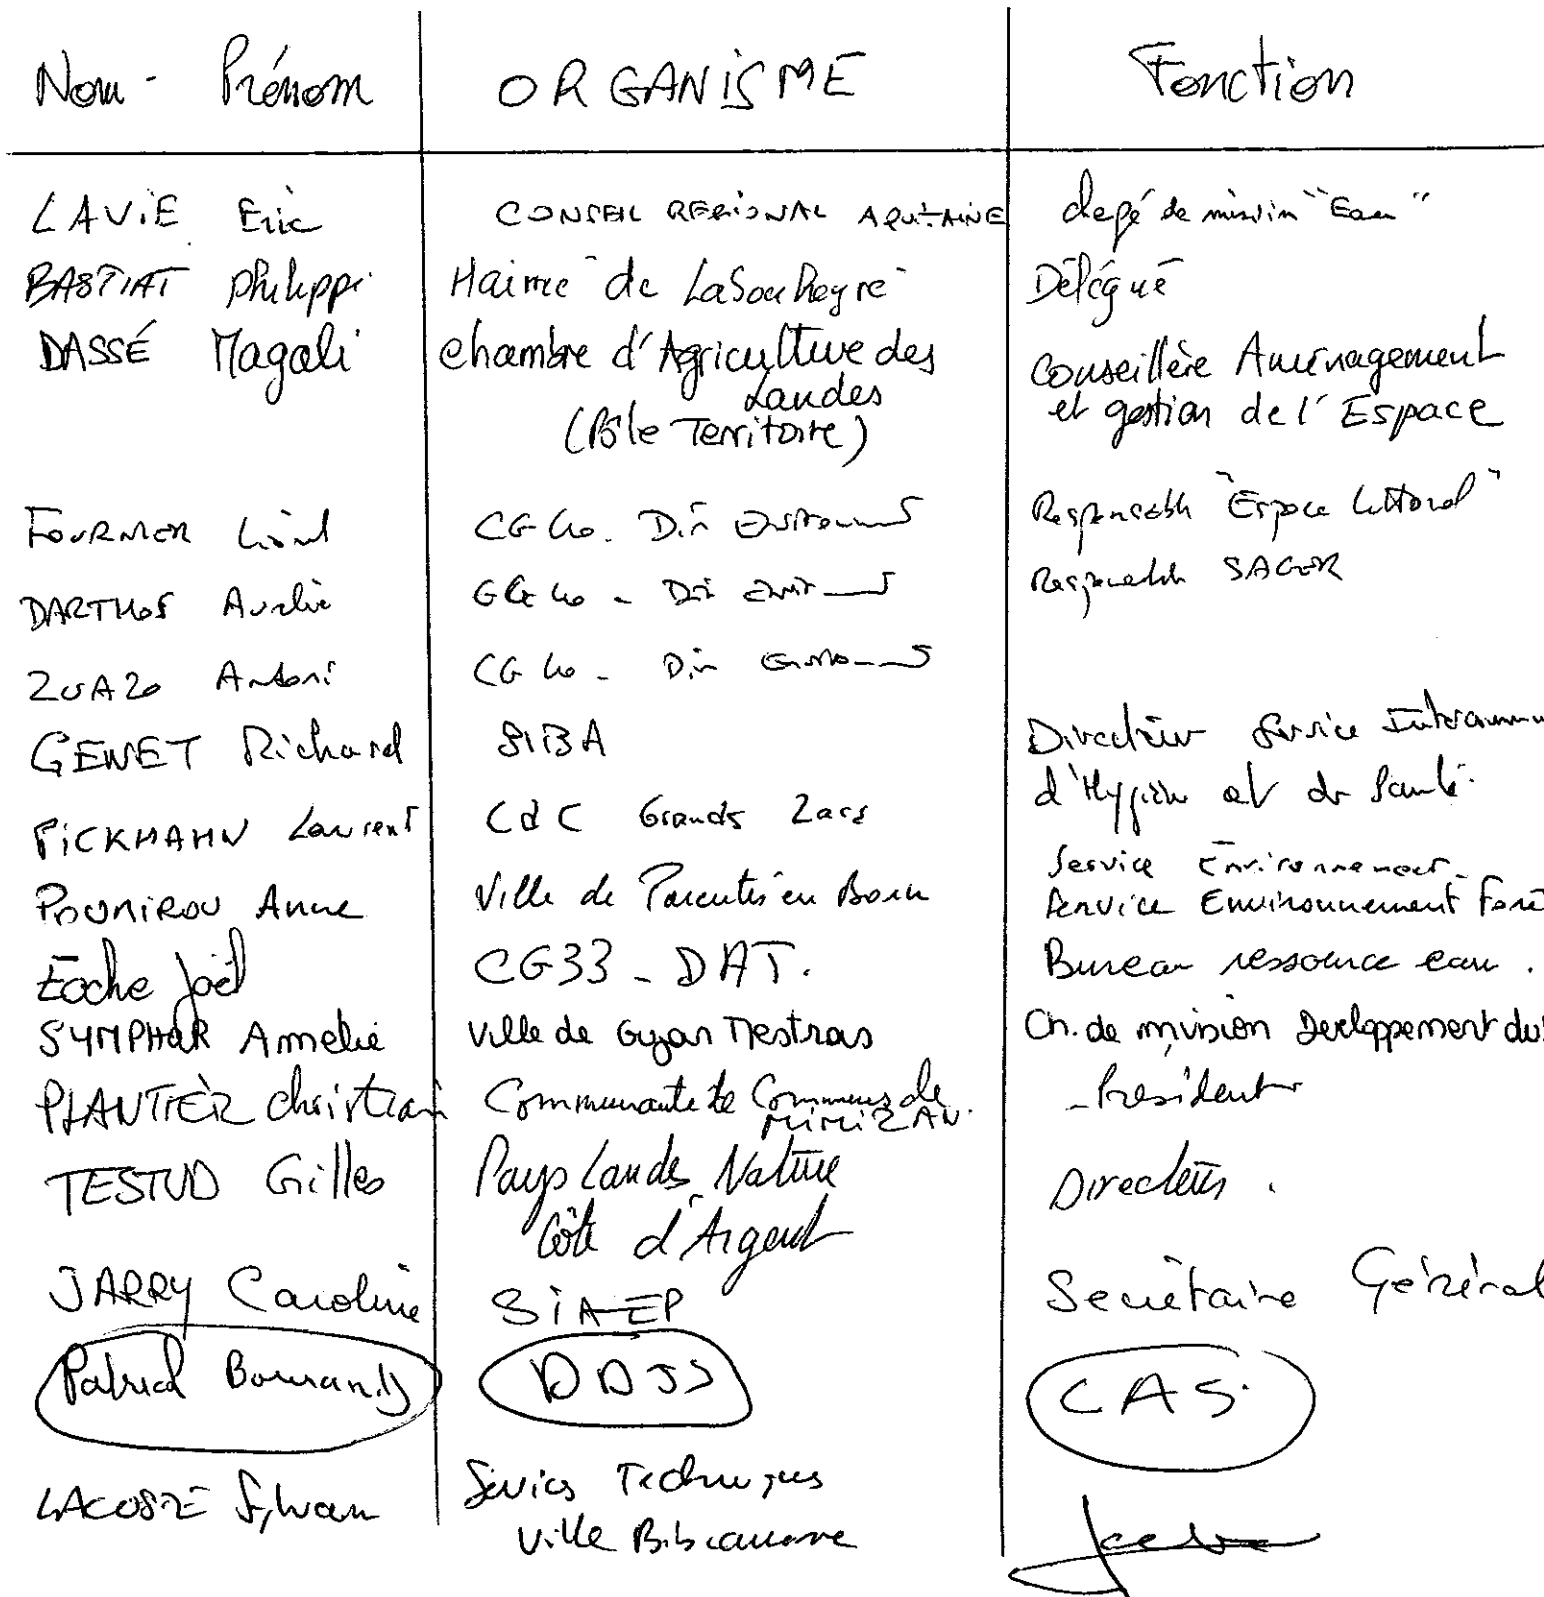 Nom - Prénom ORGANISME Fonction
LAVIE Eric CONSEIL REGIONAL AQUITAINE chargé de mission "Eau"
BASTIAT Philippe Mairie de LaBouheyre Délégué
DASSÉ Magali Chambre d'Agriculture des Landes (Pôle Territoire) Conseillère Aménagement
et gestion de l'Espace
FOURNIER Lionel CG 40. Din Responsable "Espace littoral"
DARTHOS Aurélie CG 40 - Din Responsable
ZUAZO Antoni CG 40 - Din
GENET Richard SIBA Directeur Service Intercommu
d'Hygiène et de Santé.
PICKHAHN Laurent CdC Grands Lacs Service Environnement
POUMIROU Anne Ville de Parentis en Born Service Environnement Forê
Eoche Joël CG33 - DAT. Bureau ressource eau.
SYMPHOR Amelie Ville de Gujan Mestras Ch. de mission Developpement du
PLANTIER Christian Communauté de Communes de MIMIZAN. - Président
TESTUD Gilles Pays Landes Nature
Côte d'Argent Directeur.
JARRY Caroline SIAEP Secrétaire Général
Patrick DDJS CAS.
LACOSTE Sylvain Services Techniques
Ville Biscarrosse